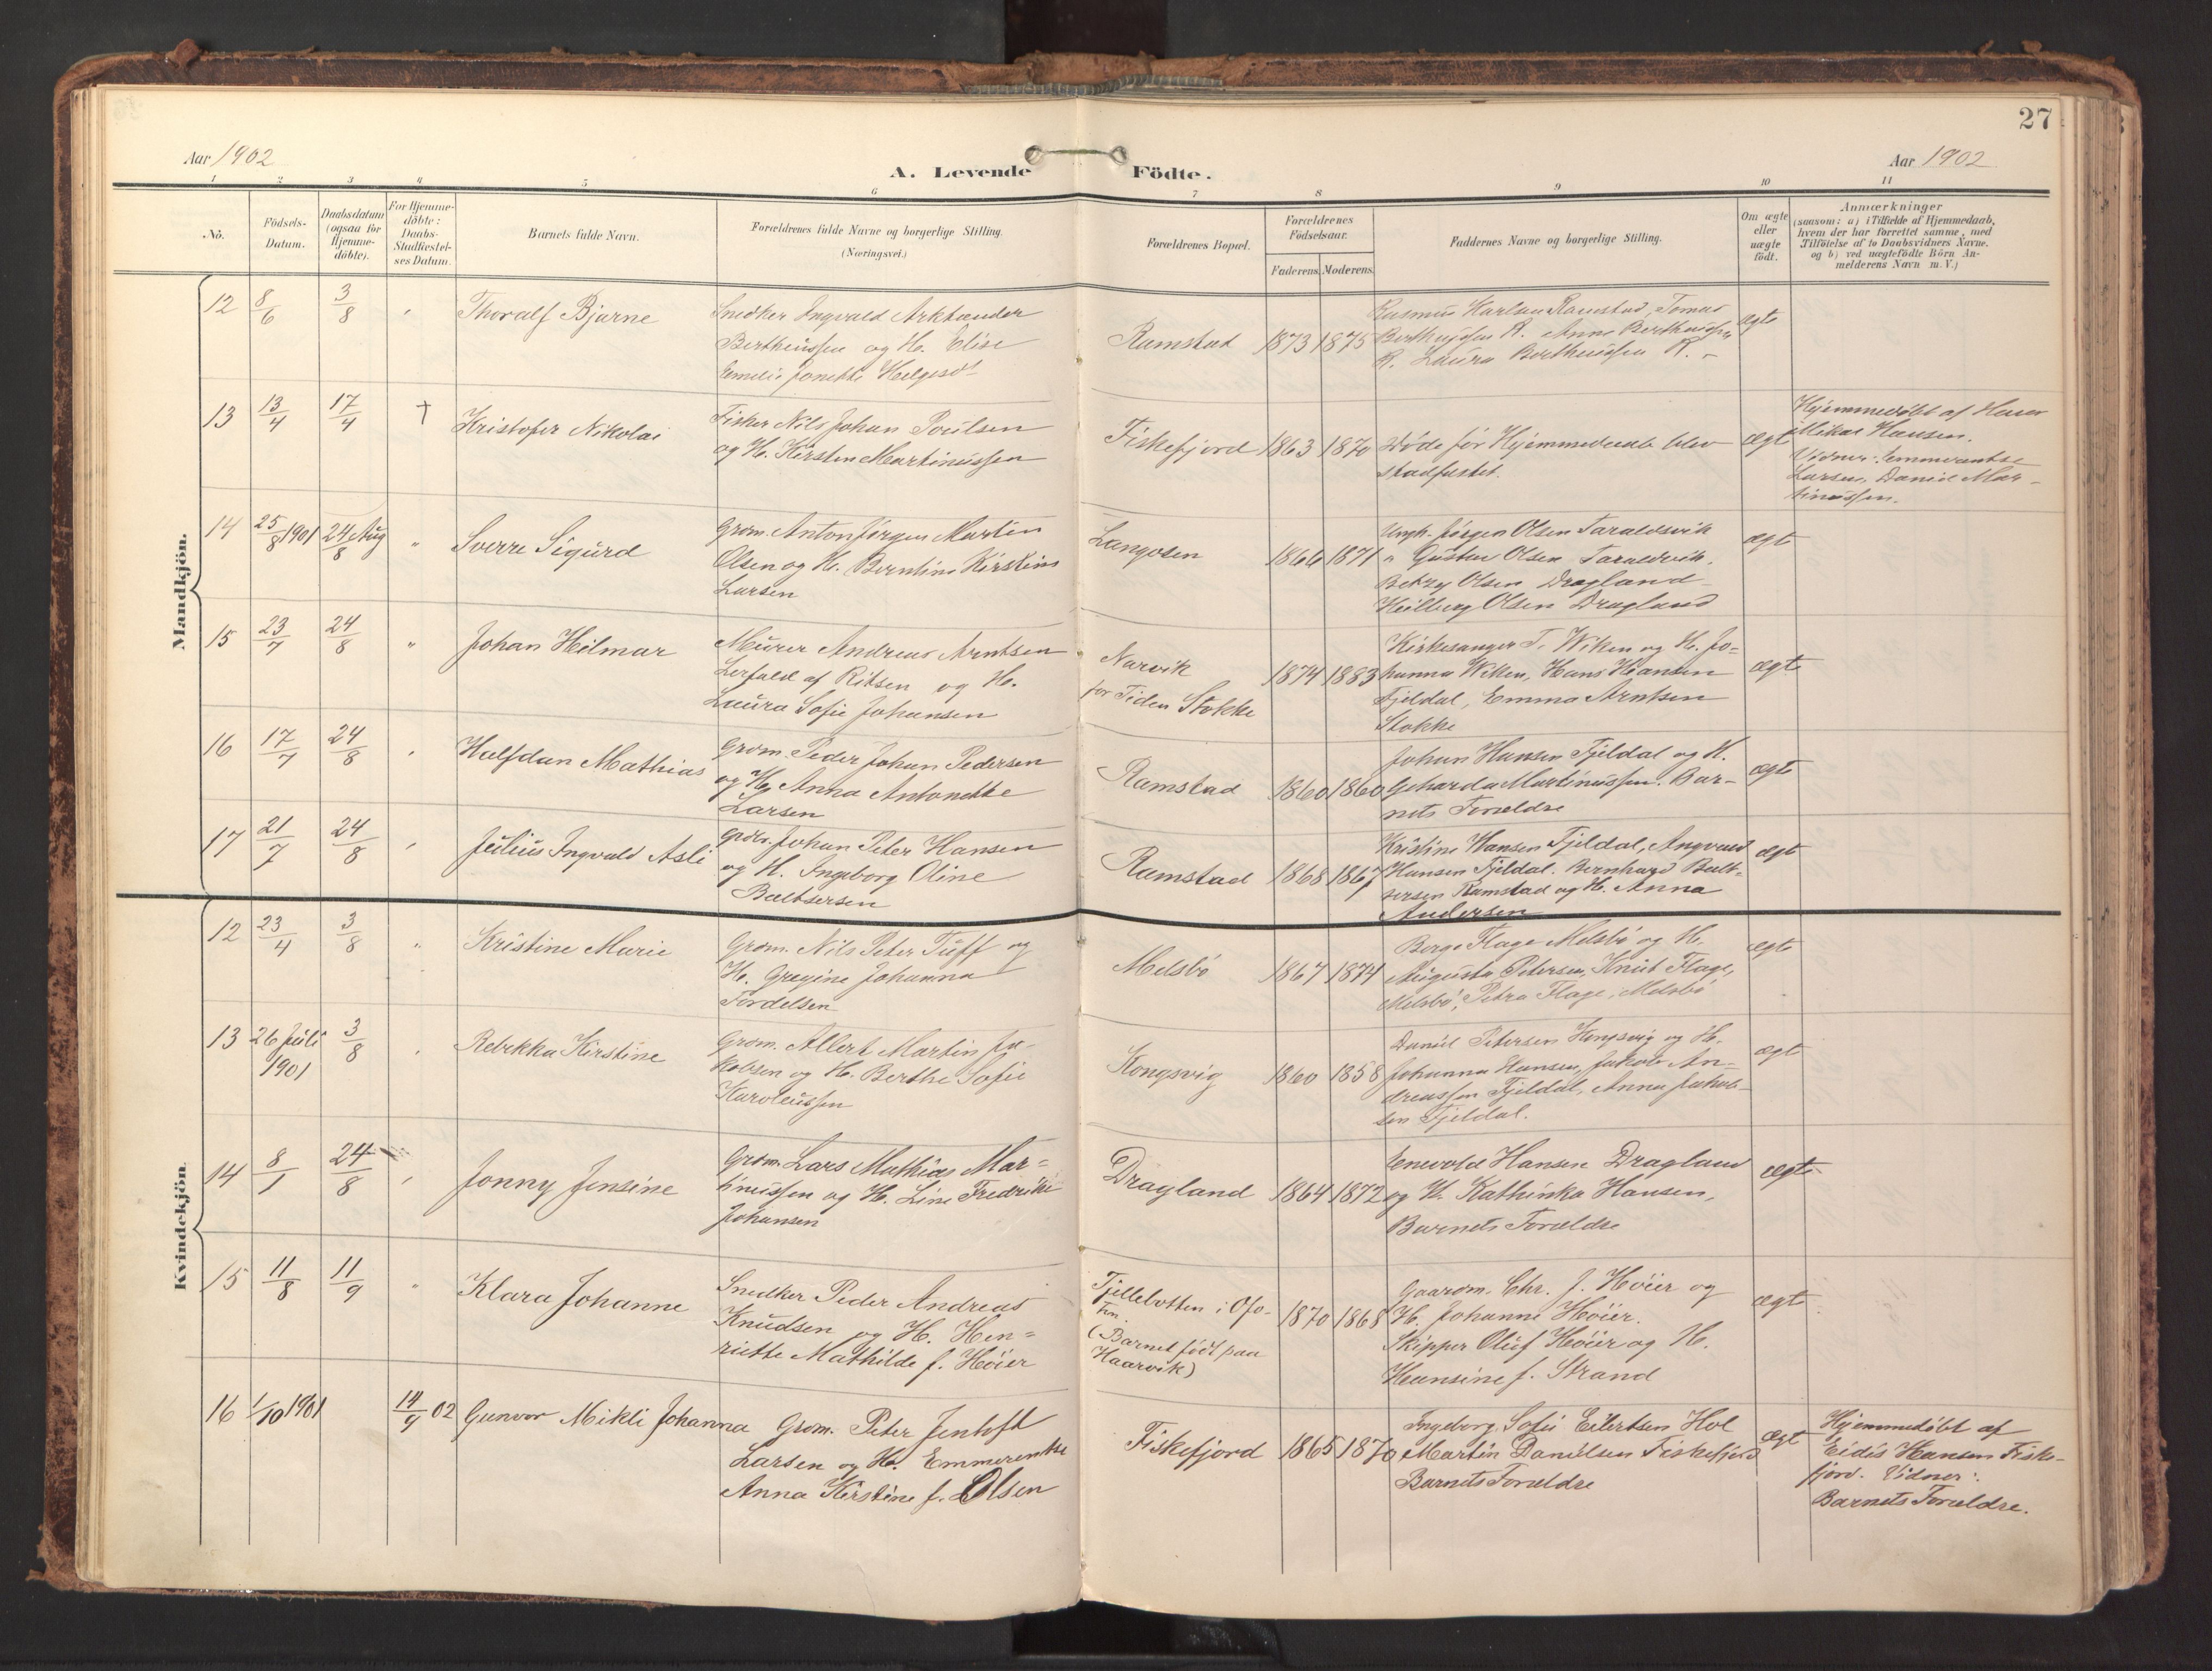 27
Aar 1902
A. Levende Födte.
Aar 1902
1 2 3 4 5 6 7 8 9 10 11
No.
Födsels-
Datum.
Daabsdatum
(ogsaa for
Hjemme-
döbte).
For Hjemme-
döbte:
Daabs-
Stadfæstel-
ses Datum.
Barnets fulde Navn.
Forældrenes fulde Navne og borgerlige Stilling.
(Næringsvei.)
Forældrenes Bopæl.
Forældrenes
Födselsaar.
Faderens. Moderens.
Faddernes Navne og borgerlige Stilling.
Om ægte
eller
uægte
födt.
Anmærkninger
(saasom: a) i Tilfælde af Hjemmedaab,
hvem der har forrettet samme, med
Tilföielse af to Daabsvidners Navne.
og b) ved uægtefödte Börn An-
melderens Navn m. V.)
Mandkjön.
12 8/6 3/8 " Thoralf Bjarne
Snedker Ingvald Arktander
Bertheussen og H. Elise
Emelie Jonette Helgesdt
Ramstad 1873 1875
Rasmus Karlsen Ramstad, Tomas
Bertheussen R. Anne Bertheussen
R. Laura Bertheussen R. –
ægte
13 13/4 17/4 † Kristofer Nikolai
Fisker Nils Johan Poulsen
og H. Kirsten Martinussen
Fiskefjord 1863 1870
Døde før Hjemmedaab blev
stadfæstet.
ægte
Hjemmedøbt af Hans
Mikal Hansen.
Vidner: Emmerentse
Larsen, Daniel Mar-
tinussen.
14 25/8 1901 24/8 Aug " Sverre Sigurd
Grdm. Anton Jørgen Martin
Olsen og H. Berntine Kirstine
Larsen
Langosen 1866 1871
Ungk. Jørgen Olsen Taraldsvik
" Gustav Olsen Taraldsvik.
Betzy Olsen Dragland
Olsen Dragland
ægte
15 23/7 24/8 " Johan Hilmar
Murer Andreas Arntsen
Lerfald af Ritsen og H.
Laura Sofie Johansen
Narvik
for Tiden Stokke
1874 1883
Kirkesanger T. Wiken og H. Jo-
hanna Wiken, Hans Hansen
Fjeldal, Emma Arntsen
Stokke
ægte
16 17/7 24/8 " Halfdan Mathias
Grdm. Peder Johan Pedersen
og H. Anna Antonette
Larsen
Ramstad 1860 1860
Johan Hansen Fjeldal og H.
Geharda Martinussen. Bar-
nets Forældre
ægte
17 21/7 24/8 " Julius Ingvald Asli
Johan Peter Hansen
og H. Ingeborg Oline
Baltsersen
Ramstad 1868 1867
Kristine Hansen Fjeldal, Angvard
Hansen Fjeldal. Bernhard Balt-
sersen Ramstad og H. Anna
Andersen
ægte
Kvindekjön.
12 23/4 3/8 " Kristine Marie
Grdm. Nils Peter Tuff og
H. Gregine Johanna
Tordelsen
Melsbö 1867 1874
Berge Flage Melsbö og H.
Augusta Petersen, Knut Flage,
Melsbö, Petra Flage, Melsbö
ægte
13 26 Juli 1901 3/8 " Rebekka Kirstine
Grdm. Allert Martin Ja-
kobsen og H. Berthe Sofie
Karoleussen
Kongsvig 1860 1858
Daniel Petersen Kongsvig og H.
Johanna Hansen, Jakob An-
dreassen Fjeldal, Anna Jakob-
sen Fjeldal.
ægte
14 8/1 24/8 " Jonny Jensine
Grdm. Lars Mathias Mar=
tinussen og H. Line Fredrikke
Johansen
Dragland 1864 1872
Enevold Hansen Dragland
og H. Kathinka Hansen,
Barnets Forældre
ægte
15 11/8 11/9 " Klara Johanne
Snedker Peder Andreas
Knudsen og H. Hen=
riette Mathilde f. Höier
Fjellebotten i Ofo-
ten.
(Barnet født paa
Haarvik)
1870 1868
Gaardm. Chr. J. Höier og
H. Johanne Höier.
Skipper Oluf Höier og H.
Hansine f. Strand
ægte
16 1/10 1901 14/9 02 Gunvor Mikli Johanna
Grdm. Peter Jentoft
Larsen og H. Emmerentse
Anna Kirstine f. Olsen
Fiskefjord 1865 1870
Ingeborg Sofie Eilertsen Hol
Martin Danielsen Fiskefjord
Barnets Forældre
ægte
Hjemmedøbt af
Eidis Hansen Fiske-
fjord. Vidner:
Barnets Forældre.